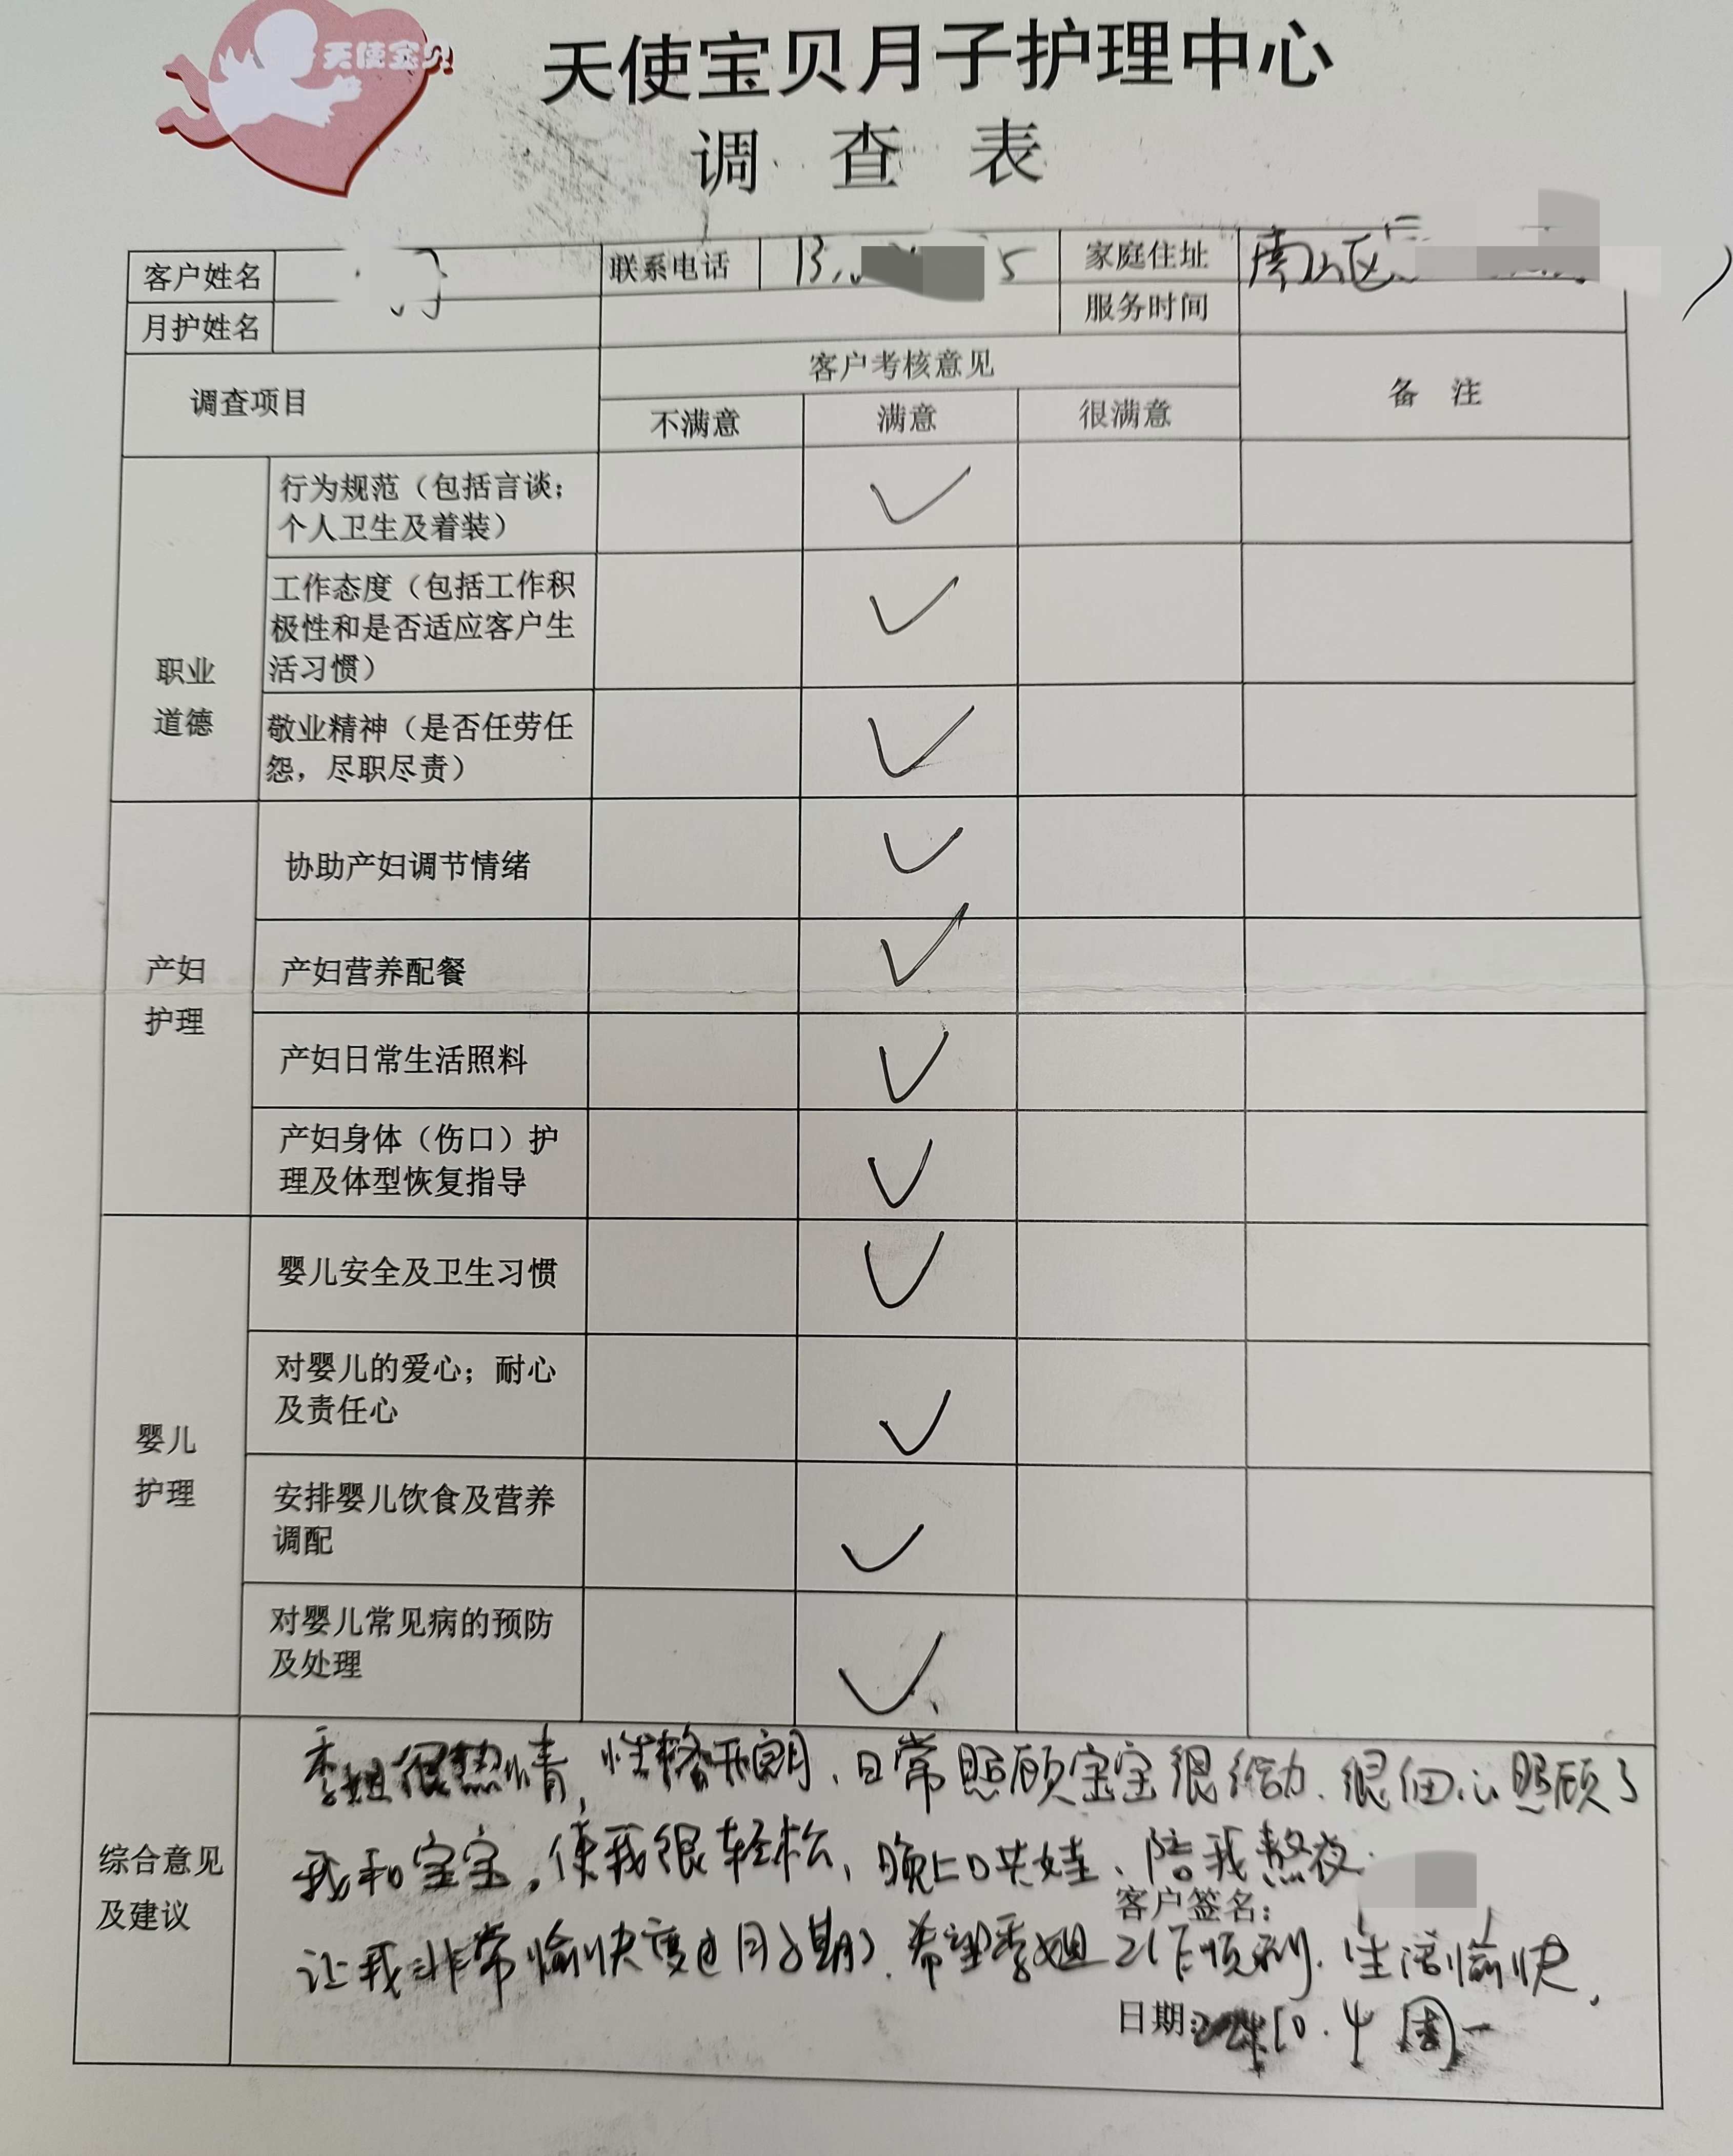 天使宝贝
天使宝贝月子护理中心
调查表
客户姓名 联系电话 13 5 家庭住址 南山区
月护姓名 服务时间
调查项目 客户考核意见 备注
不满意 满意 很满意
职业
道德
行为规范（包括言谈；
个人卫生及着装） ✓
工作态度（包括工作积
极性和是否适应客户生
活习惯） ✓
敬业精神（是否任劳任
怨，尽职尽责） ✓
产妇
护理
协助产妇调节情绪 ✓
产妇营养配餐 ✓
产妇日常生活照料 ✓
产妇身体（伤口）护
理及体型恢复指导 ✓
婴儿
护理
婴儿安全及卫生习惯 ✓
对婴儿的爱心；耐心
及责任心 ✓
安排婴儿饮食及营养
调配 ✓
对婴儿常见病的预防
及处理 ✓
综合意见
及建议
季姐很热情，性格开朗、日常照顾宝宝很给力、很细心照顾了
我和宝宝，使我很轻松、晚上哄娃、陪我熬夜.
客户签名：
让我非常愉快度过月子期、希望季姐工作顺利、生活愉快，
日期： 10.4 周一